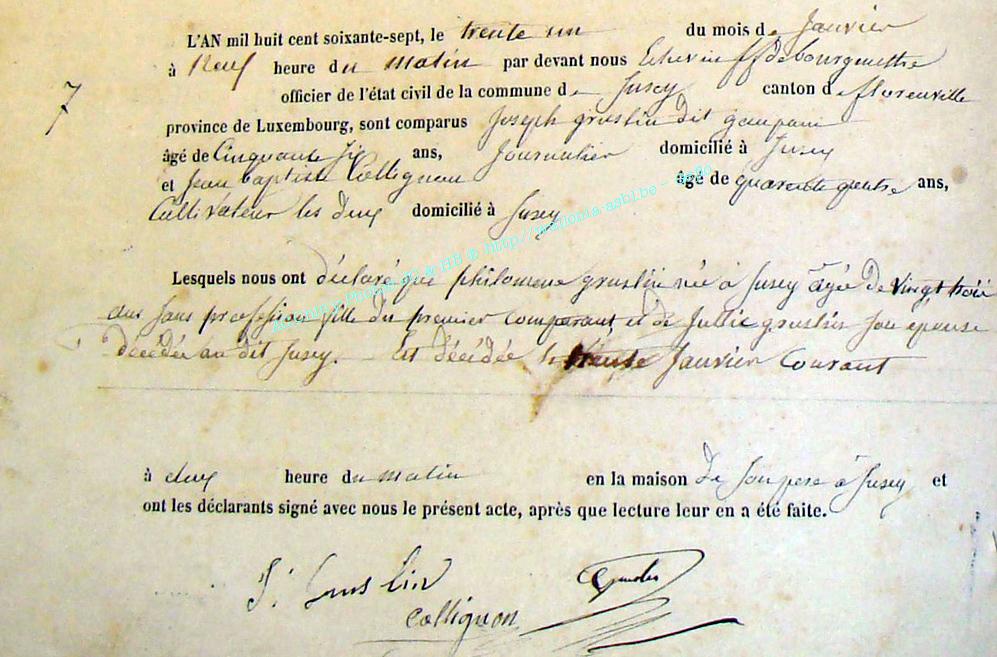 L'AN mil huit cent soixante-sept, le trente un du mois de Janvier
à Neuf heure du matin par devant nous Echevin ff de bourgmettre
7
officier de l'état civil de la commune de Jusey canton de florenville
province de Luxembourg, sont comparus Joseph gruslin dit
âgé de Cinquante six ans, Journalier domicilié à Jusey
et Jean baptiste Collignon âgé de quarente quatre ans,
Cultivateur les deux domicilié à Jusey
Lesquels nous ont déclaré que philomene gruslin née à Jusey agée de vingt trois
ans sans profession fille du premier comparant et de Jullie gruslin son epouse
décédée au dit Jusey. Est décédée le trente Janvier Courant
à deux heure du matin en la maison de son pere à Jusey et
ont les déclarants signé avec nous le présent acte, après que lecture leur en a été faite.
J. Gruslin
Collignon
& HB @ http://wallonia-asbl.be -